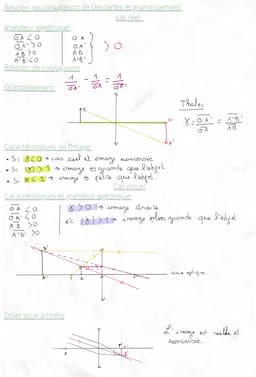 Relation de conjugaison de Descartes et grandissement:
cas réel:
grandeur algébrique:
OA < 0
OA' > 0
AB > 0
A'B' < 0
OA
OA'
AB
A'B'
> 0
Relation de conjugaison
1/OA' - 1/OA = 1/OF'
Grandissement:
Thalès
γ = OA'/OA = A'B'/AB
Caractéristiques de l'image:
• Si γ < 0 → cas réel et image renversée
• Si |γ| > 1 → image + grande que l'objet
• Si < 1 → image + petite que l'objet.
Cas virtuel
Caractéristiques et grandeur algébrique:
OA < 0
OA' < 0
AB > 0
A'B' > 0
γ > 0 → image droite
et |γ| > 1 → image plus grande que l'objet
axe optique
Objet situé à l'infini
L'image est réelle et
renversée.